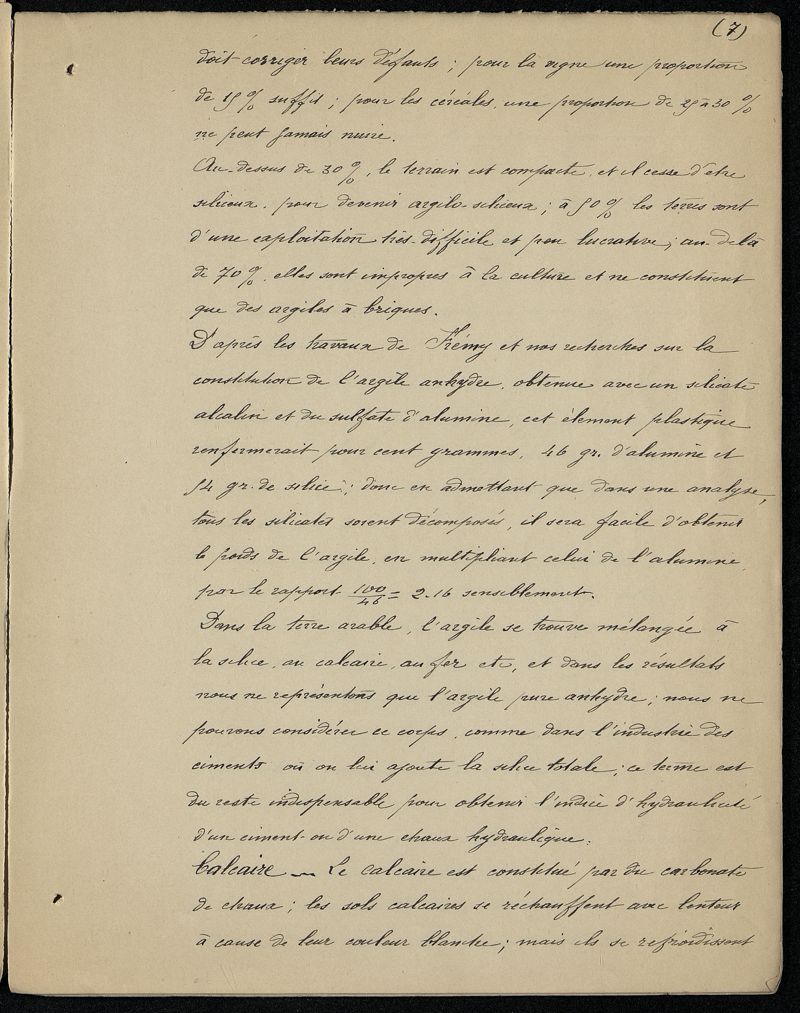 (7)
doit corriger leurs défauts ; pour la vigne une proportion
de 15 % suffit ; pour les céréales, une proportion de 25 à 30 %
ne peut jamais nuire.
Au-dessus de 30 %, le terrain est compacte, et il cesse d'être
siliceux, pour devenir argilo-siliceux ; à 50 % les terres sont
d'une exploitation très-difficile et peu lucrative ; au delà
de 70 %, elles sont impropres à la culture et ne constituent
que des argiles à briques.
D'après les travaux de Frémy et nos recherches sur la
constitution de l'argile anhydre, obtenue avec un silicate
alcalin et du sulfate d'alumine, cet élément plastique
renfermerait pour cent grammes, 46 gr. d'alumine et
54 gr. de silice ; donc en admettant que dans une analyse,
tous les silicates soient décomposés, il sera facile d'obtenir
le poids de l'argile, en multipliant celui de l'alumine,
par le rapport 100/46 = 2.16 sensiblement.
Dans la terre arable, l'argile se trouve mélangée à
la silice, au calcaire, au fer etc, et dans les résultats
nous ne représentons que l'argile pure anhydre ; nous ne
pouvons considérer ce corps, comme dans l'industrie des
ciments où on lui ajoute la silice totale ; ce terme est
du reste indispensable pour obtenir l'indice d'hydraulicité
d'un ciment ou d'une chaux hydraulique.
Calcaire — Le calcaire est constitué par du carbonate
de chaux ; les sols calcaires se réchauffent avec lenteur
à cause de leur couleur blanche ; mais ils se refroidissent